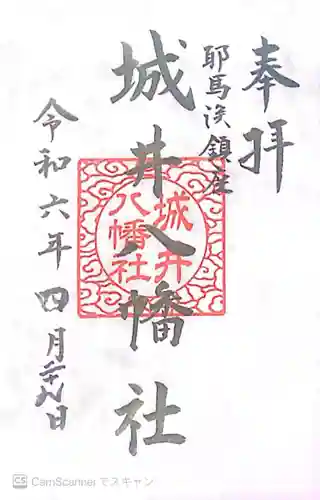 奉拝
耶馬渓鎮座
城井八幡社
城井
八幡社
令和六年四月二十九日
CS CamScanner でスキャン